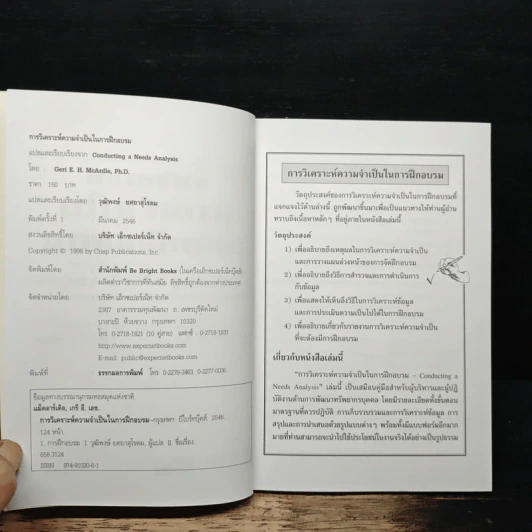 การวิเคราะห์ความจำเป็นในการฝึกอบรม
แปลและเรียบเรียงจาก Conducting a Needs Analysis
โดย Geri E. H. McArdle, Ph.D.
ราคา 150 บาท
แปลและเรียบเรียงโดย : วุฒิพงษ์ ยศถาสุโรดม
พิมพ์ครั้งที่ 1 มีนาคม 2546
สงวนลิขสิทธิ์โดย บริษัท เอ็กซเปอร์เน็ท จำกัด
Copyright © 1998 by Crisp Publications, Inc.
จัดพิมพ์โดย สำนักพิมพ์ Be Bright Books (ในเครือเอ็กซเปอร์เน็ทบุ๊คส์)
ผลิตตำราวิชาการที่ทันสมัย ลิขสิทธิ์ถูกต้องจากต่างประเทศ
จัดจำหน่ายโดย : บริษัท เอ็กซเปอร์เน็ท จำกัด
2387 อาคารรวมทุนพัฒนา ถ. เพชรบุรีตัดใหม่
บางกะปิ ห้วยขวาง กรุงเทพฯ 10320
โทร. 0-2718-1821 (10 คู่สาย) แฟกซ์ : 0-2718-1831
http://www.expernetbooks.com
E-mail: public@expernetbooks.com
พิมพ์ที่ ธรรกมลการพิมพ์ โทร.
ข้อมูลทางบรรณานุกรมหอสมุดแห่งชาติ
แม็คอาร์เดิล, เกรี อี. เอช.
การวิเคราะห์ความจำเป็นในการฝึกอบรม--กรุงเทพฯ: บีไบร์ทบุ๊คส์, 2546.
124 หน้า.
1. การฝึกอบรม I. วุฒิพงษ์ ยศถาสุโรดม, ผู้แปล. II. ชื่อเรื่อง.
658.3124
ISBN 974-91320-6-1
การวิเคราะห์ความจำเป็นในการฝึกอบรม
วัตถุประสงค์ของการวิเคราะห์ความจำเป็นในการฝึกอบรมที่
แจกแจงไว้ด้านล่างนี้ ถูกพัฒนาขึ้นมาเพื่อเป็นแนวทางให้ท่านผู้อ่าน
ทราบถึงเนื้อหาหลักๆ ที่อยู่ภายในหนังสือเล่มนี้
วัตถุประสงค์
1) เพื่ออธิบายถึงเหตุผลในการวิเคราะห์ความจำเป็น
และการวางแผนล่วงหน้าของการจัดฝึกอบรม
2) เพื่ออธิบายถึงวิธีการสำรวจและการดำเนินการ
กับข้อมูล
3) เพื่อแสดงให้เห็นถึงวิธีในการวิเคราะห์ข้อมูล
และการประเมินความเป็นไปได้ในการฝึกอบรม
4) เพื่ออธิบายเกี่ยวกับรายงานการวิเคราะห์ความจำเป็น
ที่จะต้องมีการฝึกอบรม
เกี่ยวกับหนังสือเล่มนี้
"การวิเคราะห์ความจำเป็นในการฝึกอบรม – Conducting a
Needs Analysis" เล่มนี้ เป็นเสมือนคู่มือสำหรับผู้บริหารและผู้ปฏิ
บัติงานด้านการพัฒนาทรัพยากรบุคคล โดยมีรายละเอียดทั้งขั้นตอน
มาตรฐานที่ควรปฏิบัติ การเก็บรวบรวมและการวิเคราะห์ข้อมูล การ
สรุปและการนำเสนอด้วยรูปแบบต่างๆ พร้อมทั้งมีแบบฟอร์มอีกมาก
มายที่ท่านสามารถจะนำไปใช้ประโยชน์ในงานจริงได้อย่างเป็นรูปธรรม